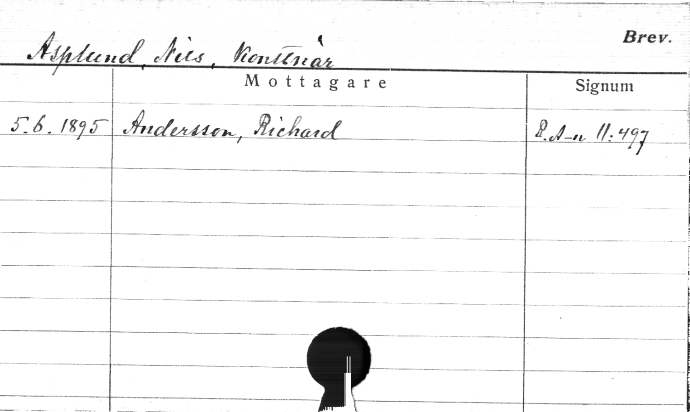 Brev.
Asplund, Nils, Konstnär
Mottagare Signum
5.6.1895 Andersson, Richard R. A-n II:497